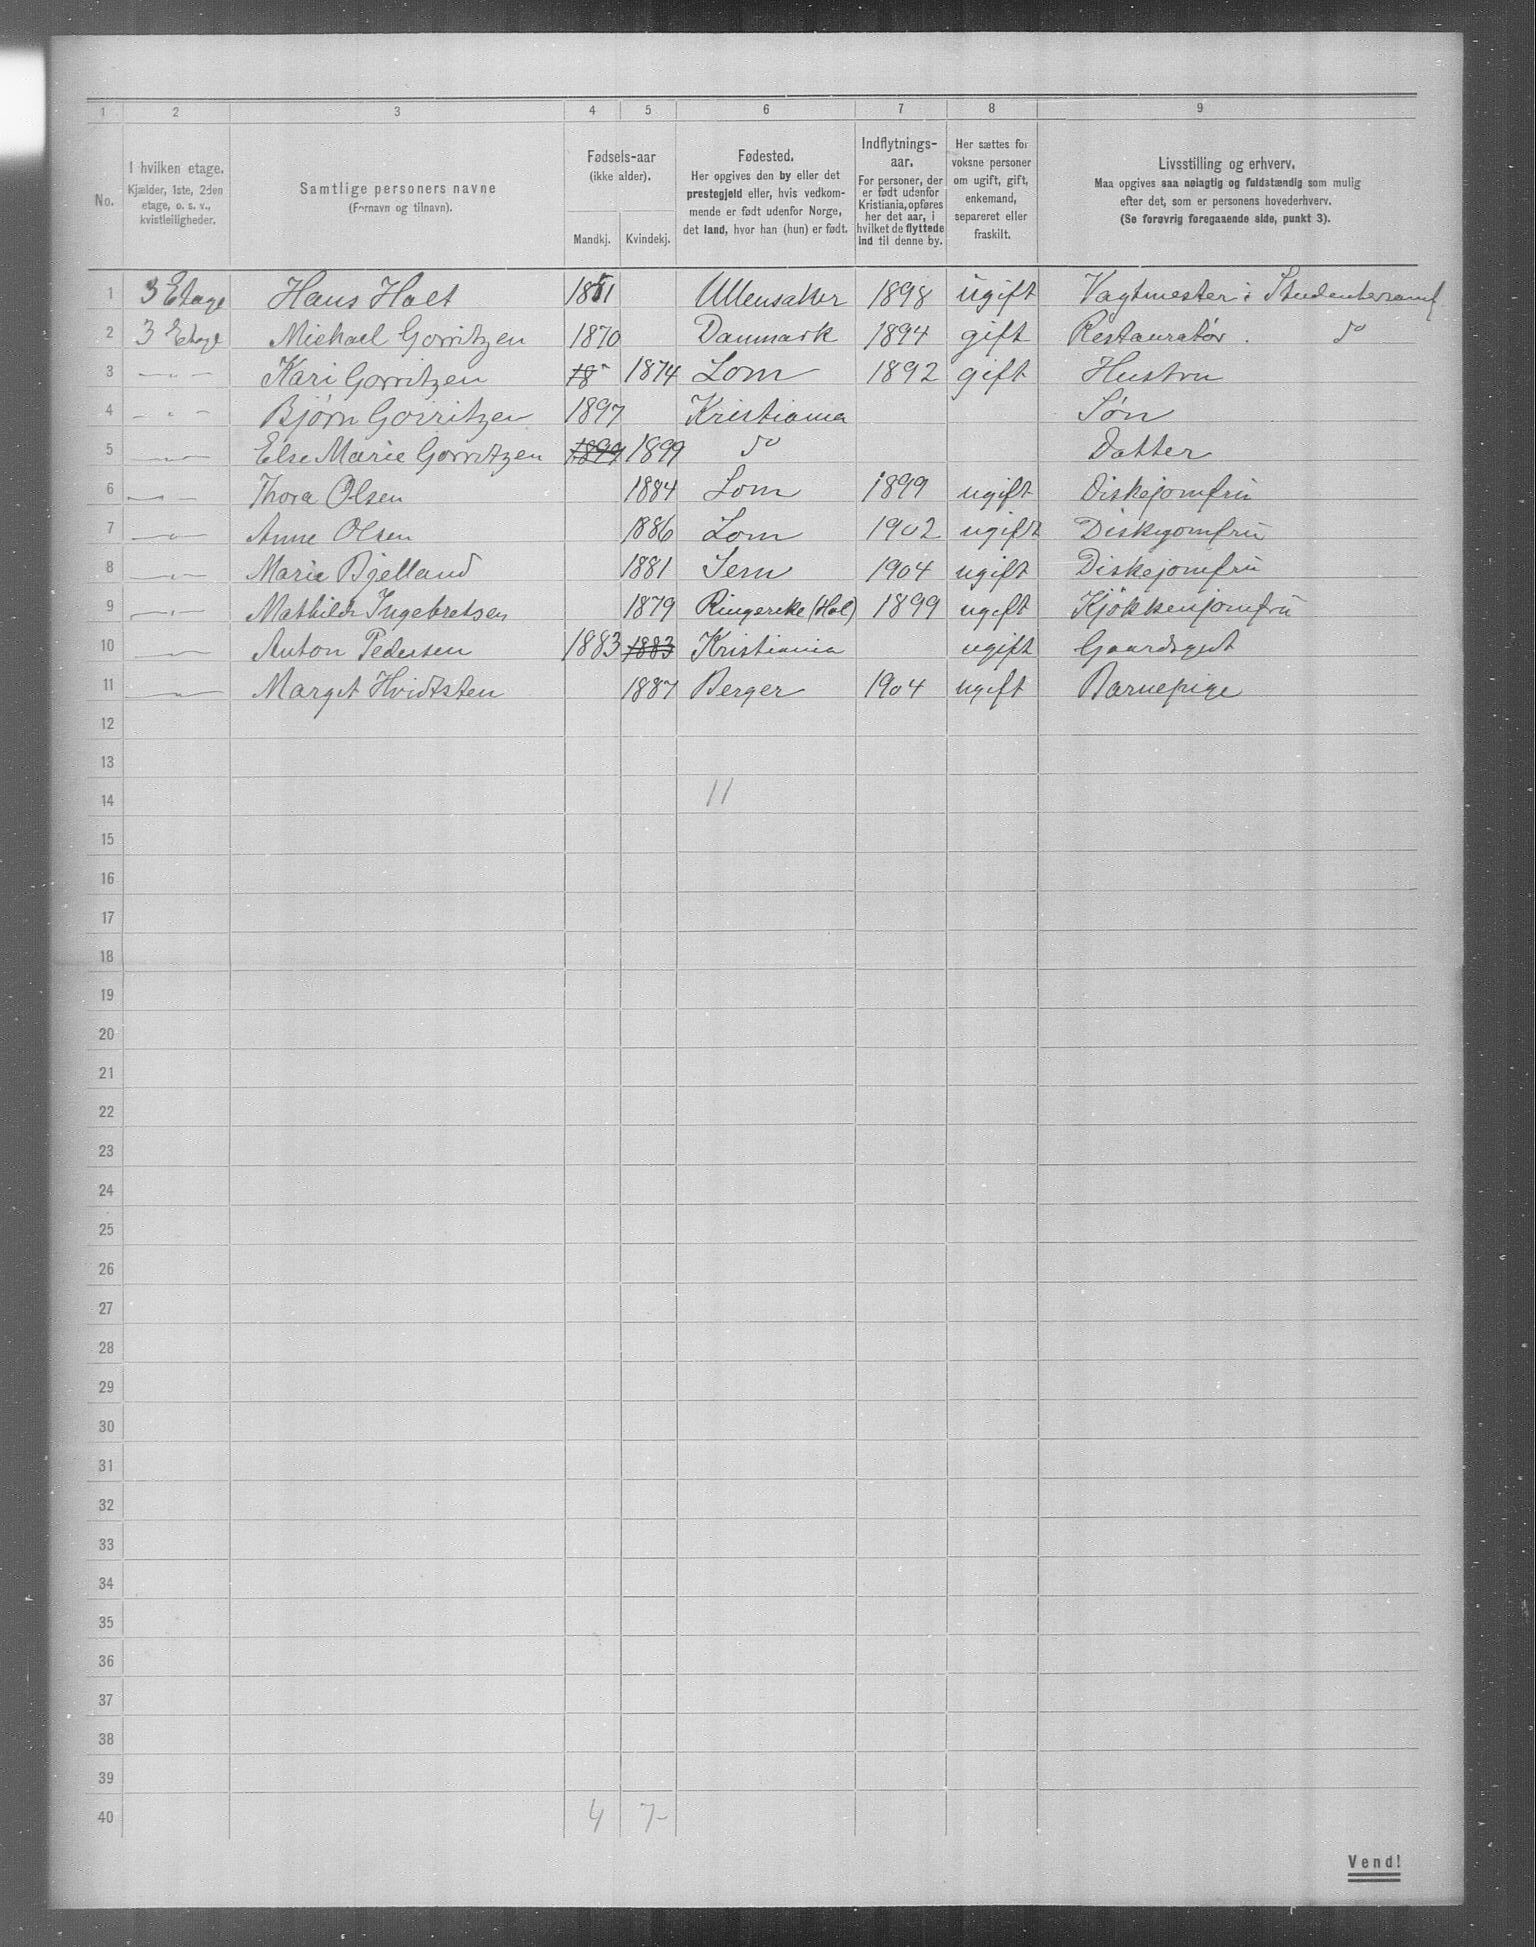 1 2 3 4 5 6 7 8 9
No.
I hvilken etage.
Kjælder, 1ste, 2den
etage, o. s. v.,
kvistleiligheder.
Samtlige personers navne
(Fornavn og tilnavn).
Fødsels-aar
(ikke alder).
Mandkj. Kvindekj.
Fødested.
Her opgives den by eller det
prestegjeld eller, hvis vedkom-
mende er født udenfor Norge,
det land, hvor han (hun) er født.
Indflytnings-
aar.
For personer, der
er født udenfor
Kristiania, opføres
her det aar, i
hvilket de flyttede
ind til denne by.
Her sættes for
voksne personer
om ugift, gift,
enkemand,
separeret eller
fraskilt.
Livsstilling og erhverv.
Maa opgives saa nøiagtig og fuldstændig som mulig
efter det, som er personens hovederhverv.
(Se forøvrig foregaaende side, punkt 3).
1 3 Etage Hans Holt 1851 Ullensaker 1898 ugift Vagtmester i Studentersamf
2 3 Etage Michael Gorritzen 1870 Danmark 1894 gift Restauratør . do
3 — " — Kari Gorritzen 18 1874 Lom 1892 gift Hustru
4 — " — Bjørn Gorritzen 1897 Kristiania Søn
5 — " — Else Marie Gorritzen 1899 1899 do Datter
6 — " — Thora Olsen 1884 Lom 1899 ugift Diskejomfru
7 — " — Anne Olsen 1886 Lom 1902 ugift Diskejomfru
8 — " — Marie Bjelland 1881 Sem 1904 ugift Diskejomfru
9 — " — Mathilde Ingebretsen 1879 Ringereke (Hol) 1899 ugift Kjøkkenjomfru
10 — " — Anton Pedersen 1883 1883 Kristiania ugift Gaardsgut
11 — " — Margit Hvidtsten 1887 Berger 1904 ugift Barnepige
12
13
14 11
15
16
17
18
19
20
21
22
23
24
25
26
27
28
29
30
31
32
33
34
35
36
37
38
39
40 4 7-
Vend!